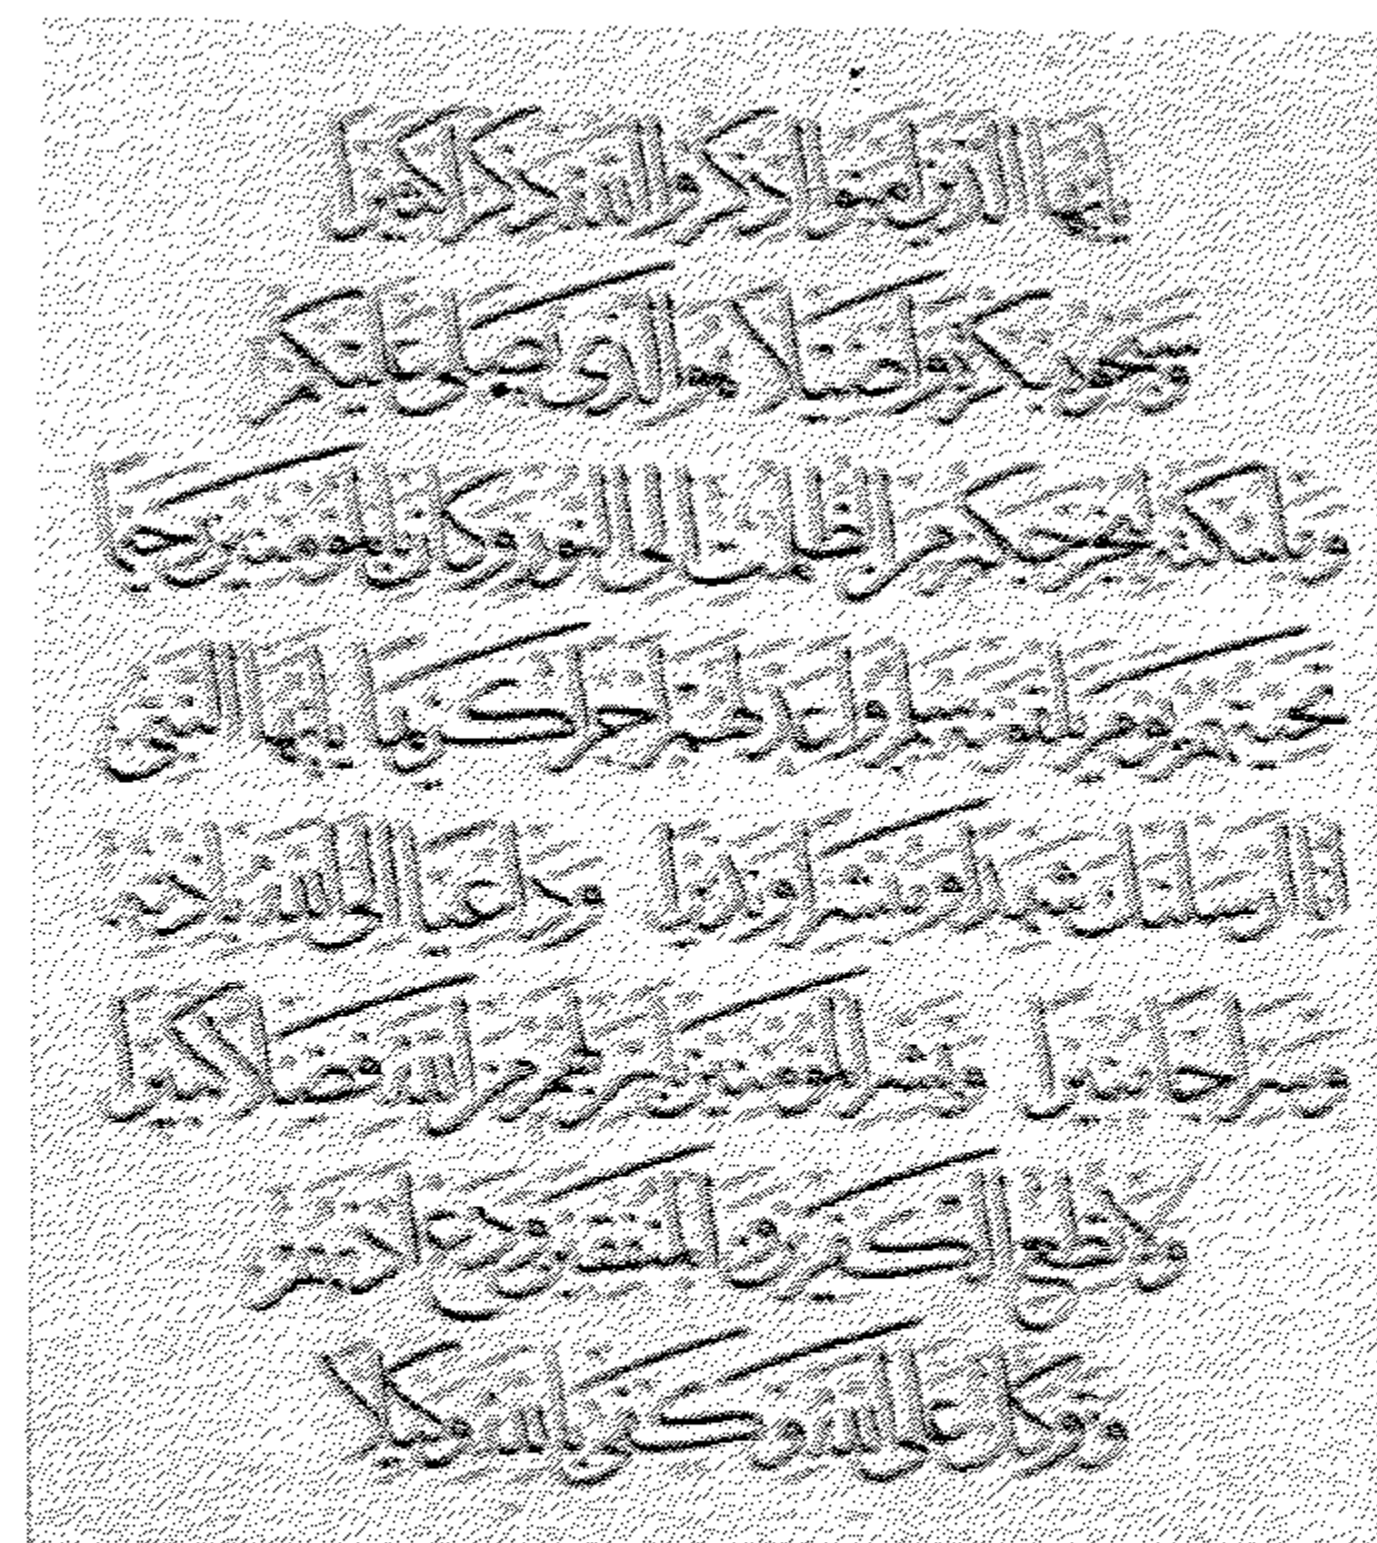 يأيها الذين ءامنوا اذكروا الله ذكرا كثيرا
وسبحوه بكرة وأصيلا هو الذي يصلي عليكم
وملئكته ليخرجكم من الظلمت إلى النور وكان بالمؤمنين رحيما
تحيتهم يوم يلقونه سلم وأعد لهم أجرا كريما يأيها النبي
إنا أرسلنك شهدا ومبشرا ونذيرا وداعيا إلى الله بإذنه
وسراجا منيرا وبشر المؤمنين بأن لهم من الله فضلا كبيرا
ولا تطع الكفرين والمنفقين ودع أذىهم
وتوكل على الله وكفى بالله وكيلا